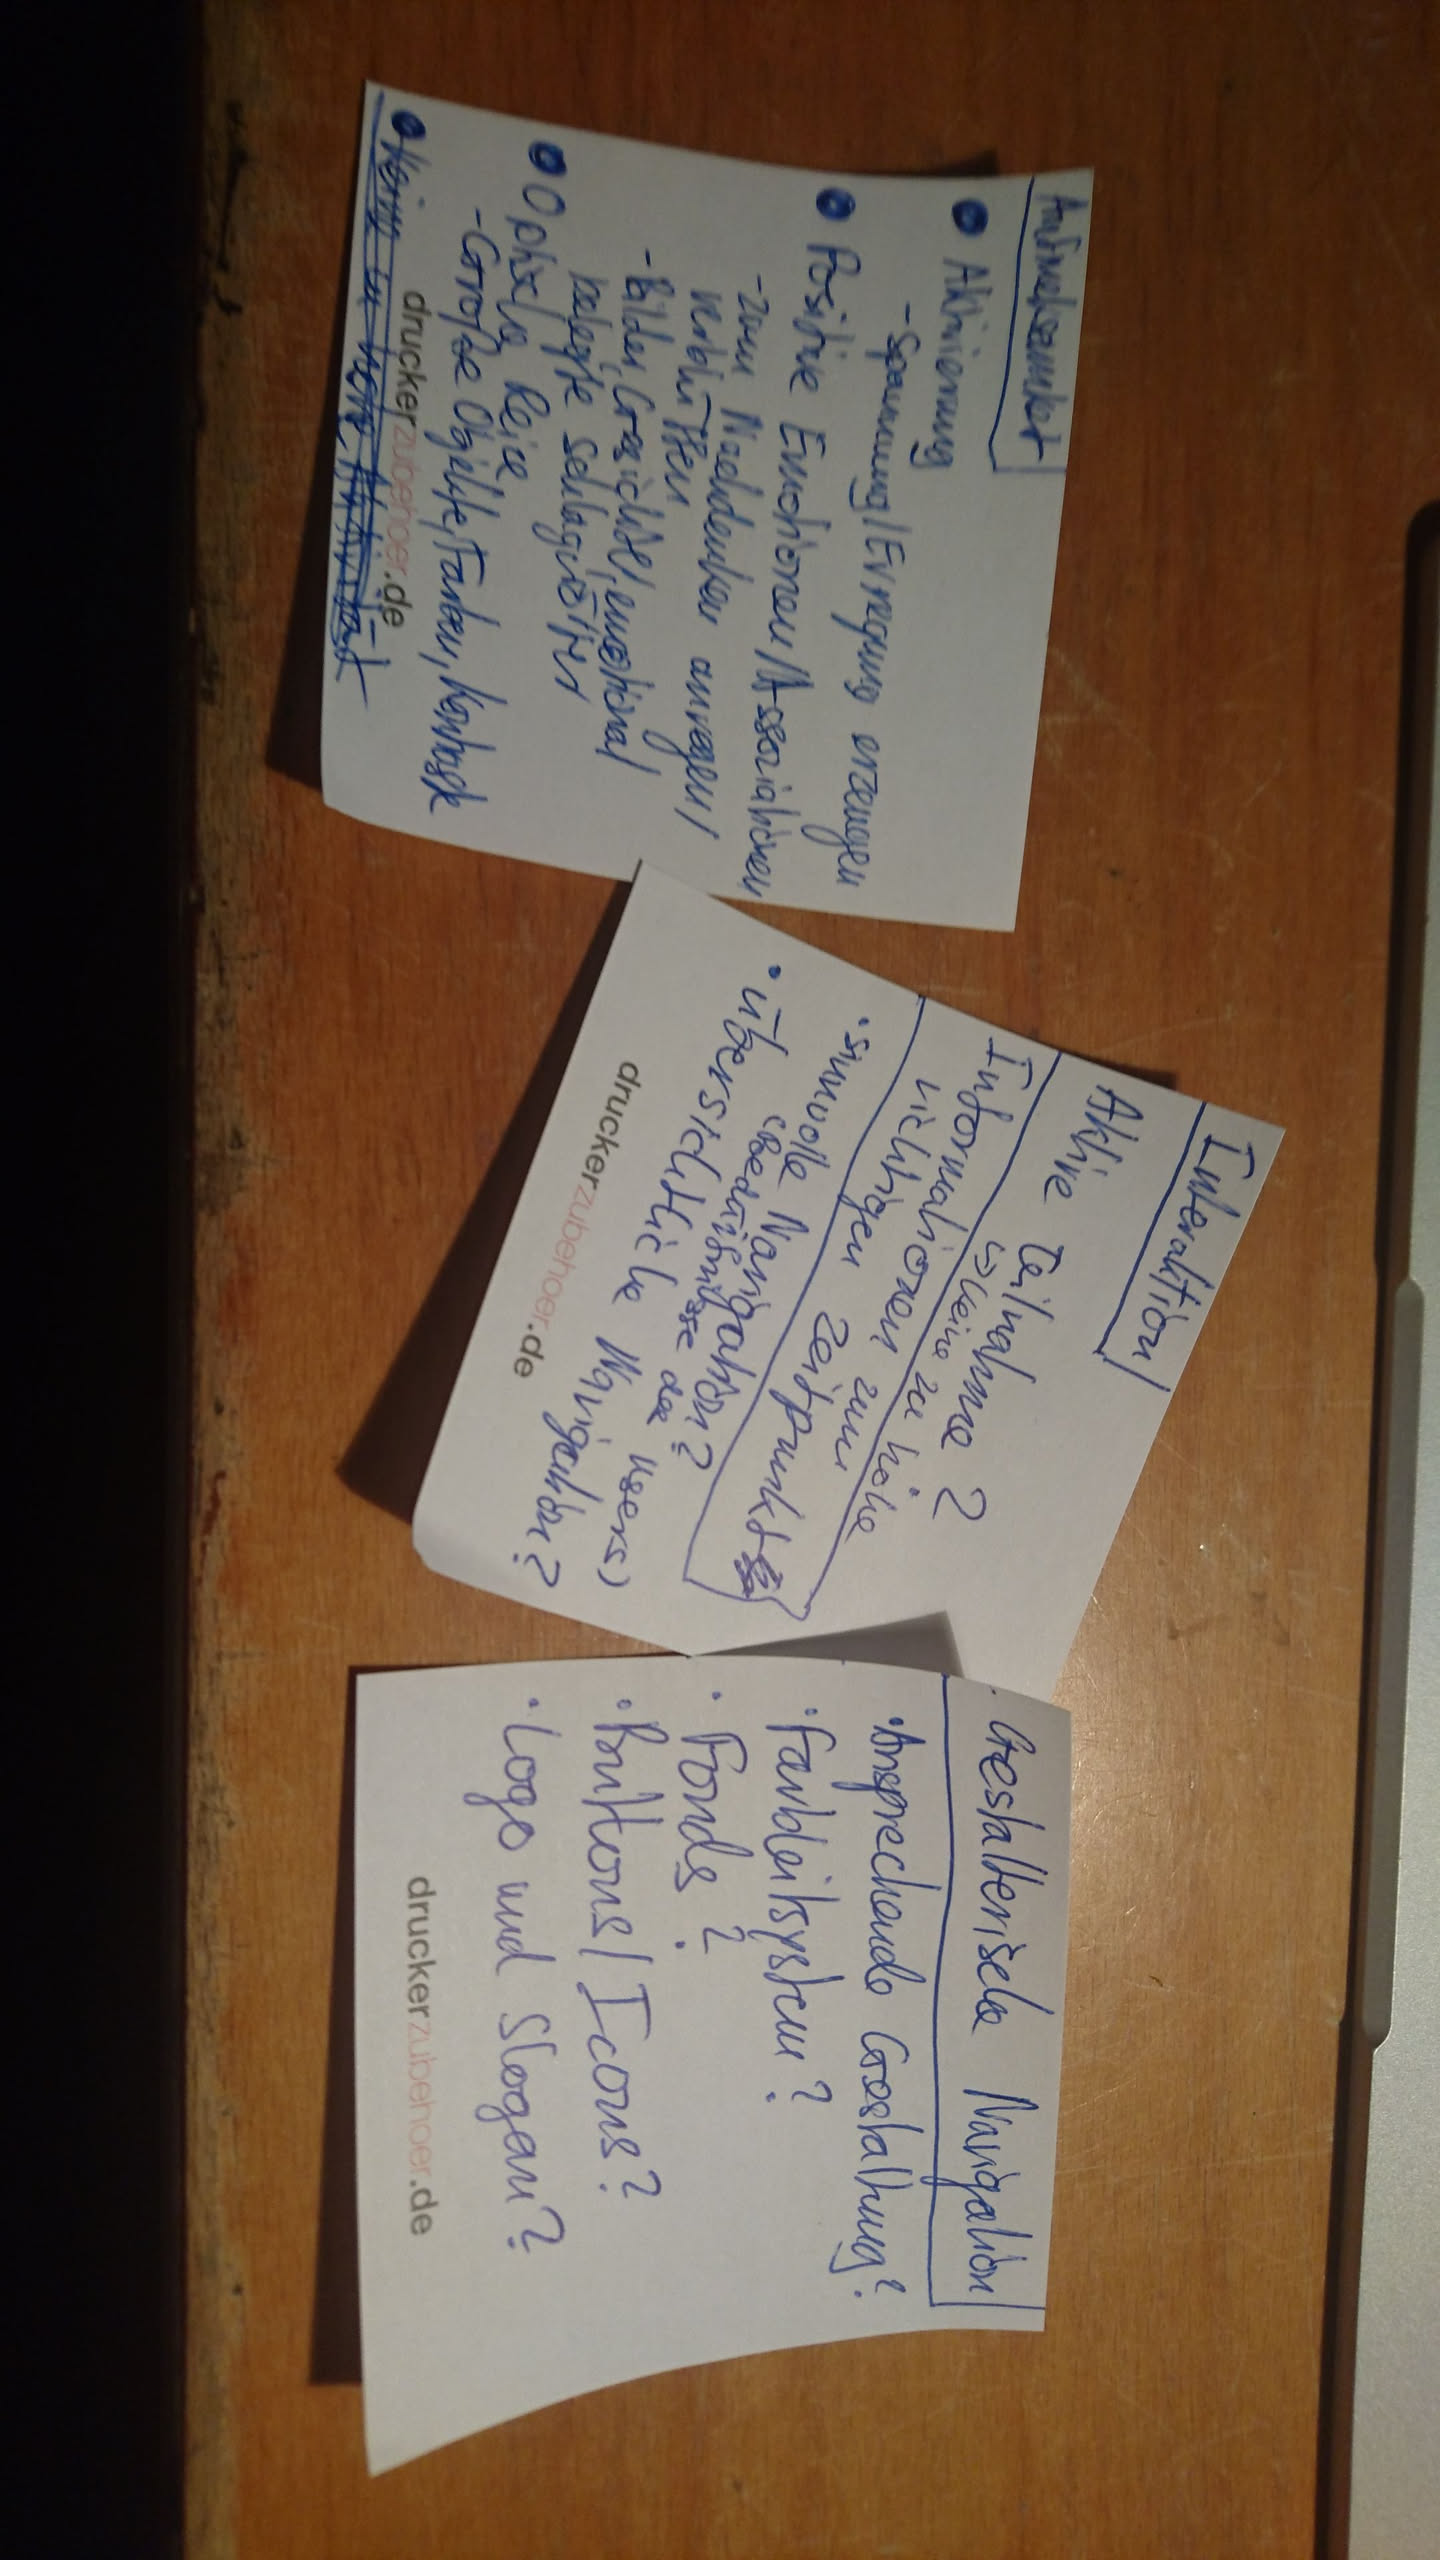 Aufmerksamkeit
• Aktivierung
- Spannung/Erregung erzeugen
• Positive Emotionen/Assoziationen
- zum Nachdenken anregen/
verblüffen
- Bilder, Gesichter, emotional
belegte Schlagwörter
• Optische Reize
- Große Objekte, Farben, Kontraste
druckerzubehoer.de
Interaktion
Aktive Teilnahme?
↳ keine zu hohe
Informationen zum
richtigen Zeitpunkt
• sinnvolle Navigation?
(Bedürfnisse des Users)
• übersichtliche Navigation?
druckerzubehoer.de
Gestalterische Navigation
• Ansprechende Gestaltung?
• Farbleitsystem?
• Fonds?
• Buttons/Icons?
• Logo und Slogan?
druckerzubehoer.de